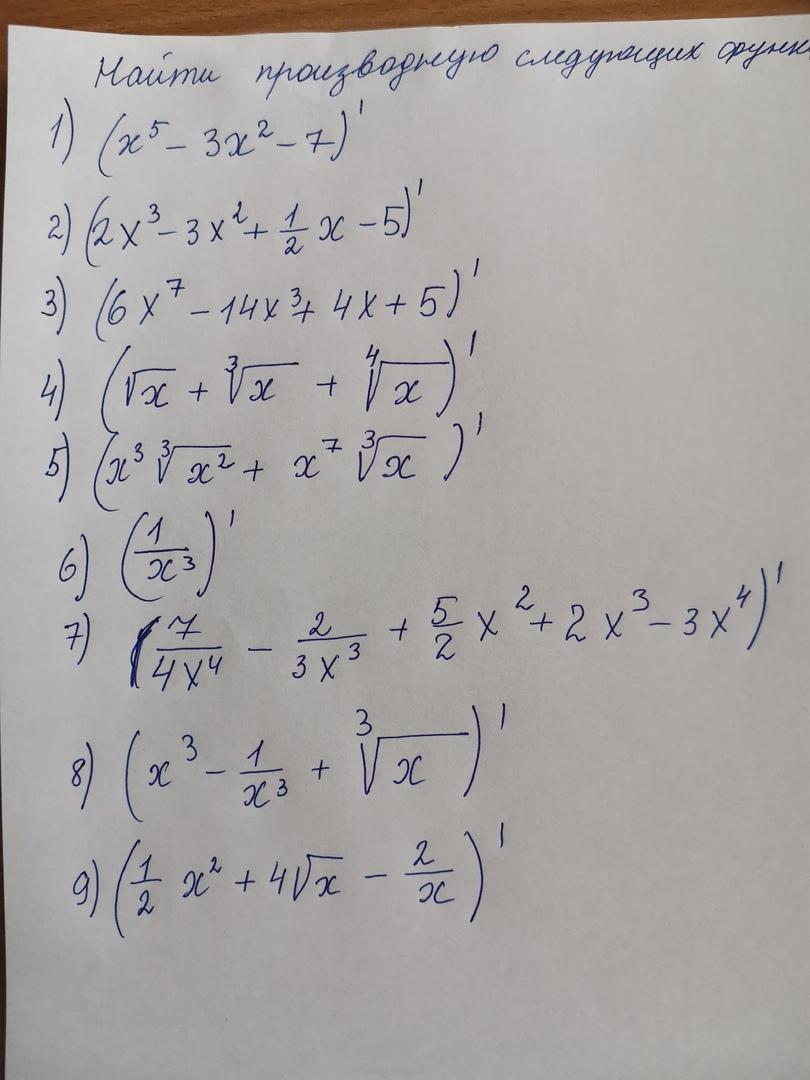 Найти производную следующих функ
1) (x⁵ - 3x² - 7)'
2) (2x³ - 3x² + 1/2 x - 5)'
3) (6x⁷ - 14x³ + 4x + 5)'
4) (√x + ∛x + ∜x)'
5) (x³ ∛x² + x⁷ ∛x)'
6) (1/x³)'
7) (7/4x⁴ - 2/3x³ + 5/2 x² + 2x³ - 3x⁴)'
8) (x³ - 1/x³ + ∛x)'
9) (1/2 x² + 4√x - 2/x)'